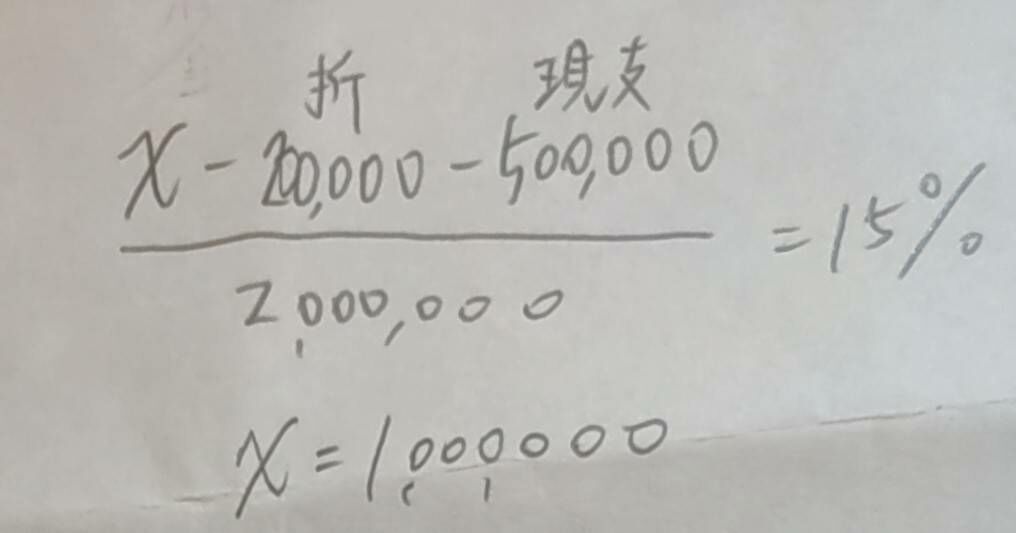 折 現支
X - 200,000 - 500,000
= 15%
2,000,000
X = 1,000,000